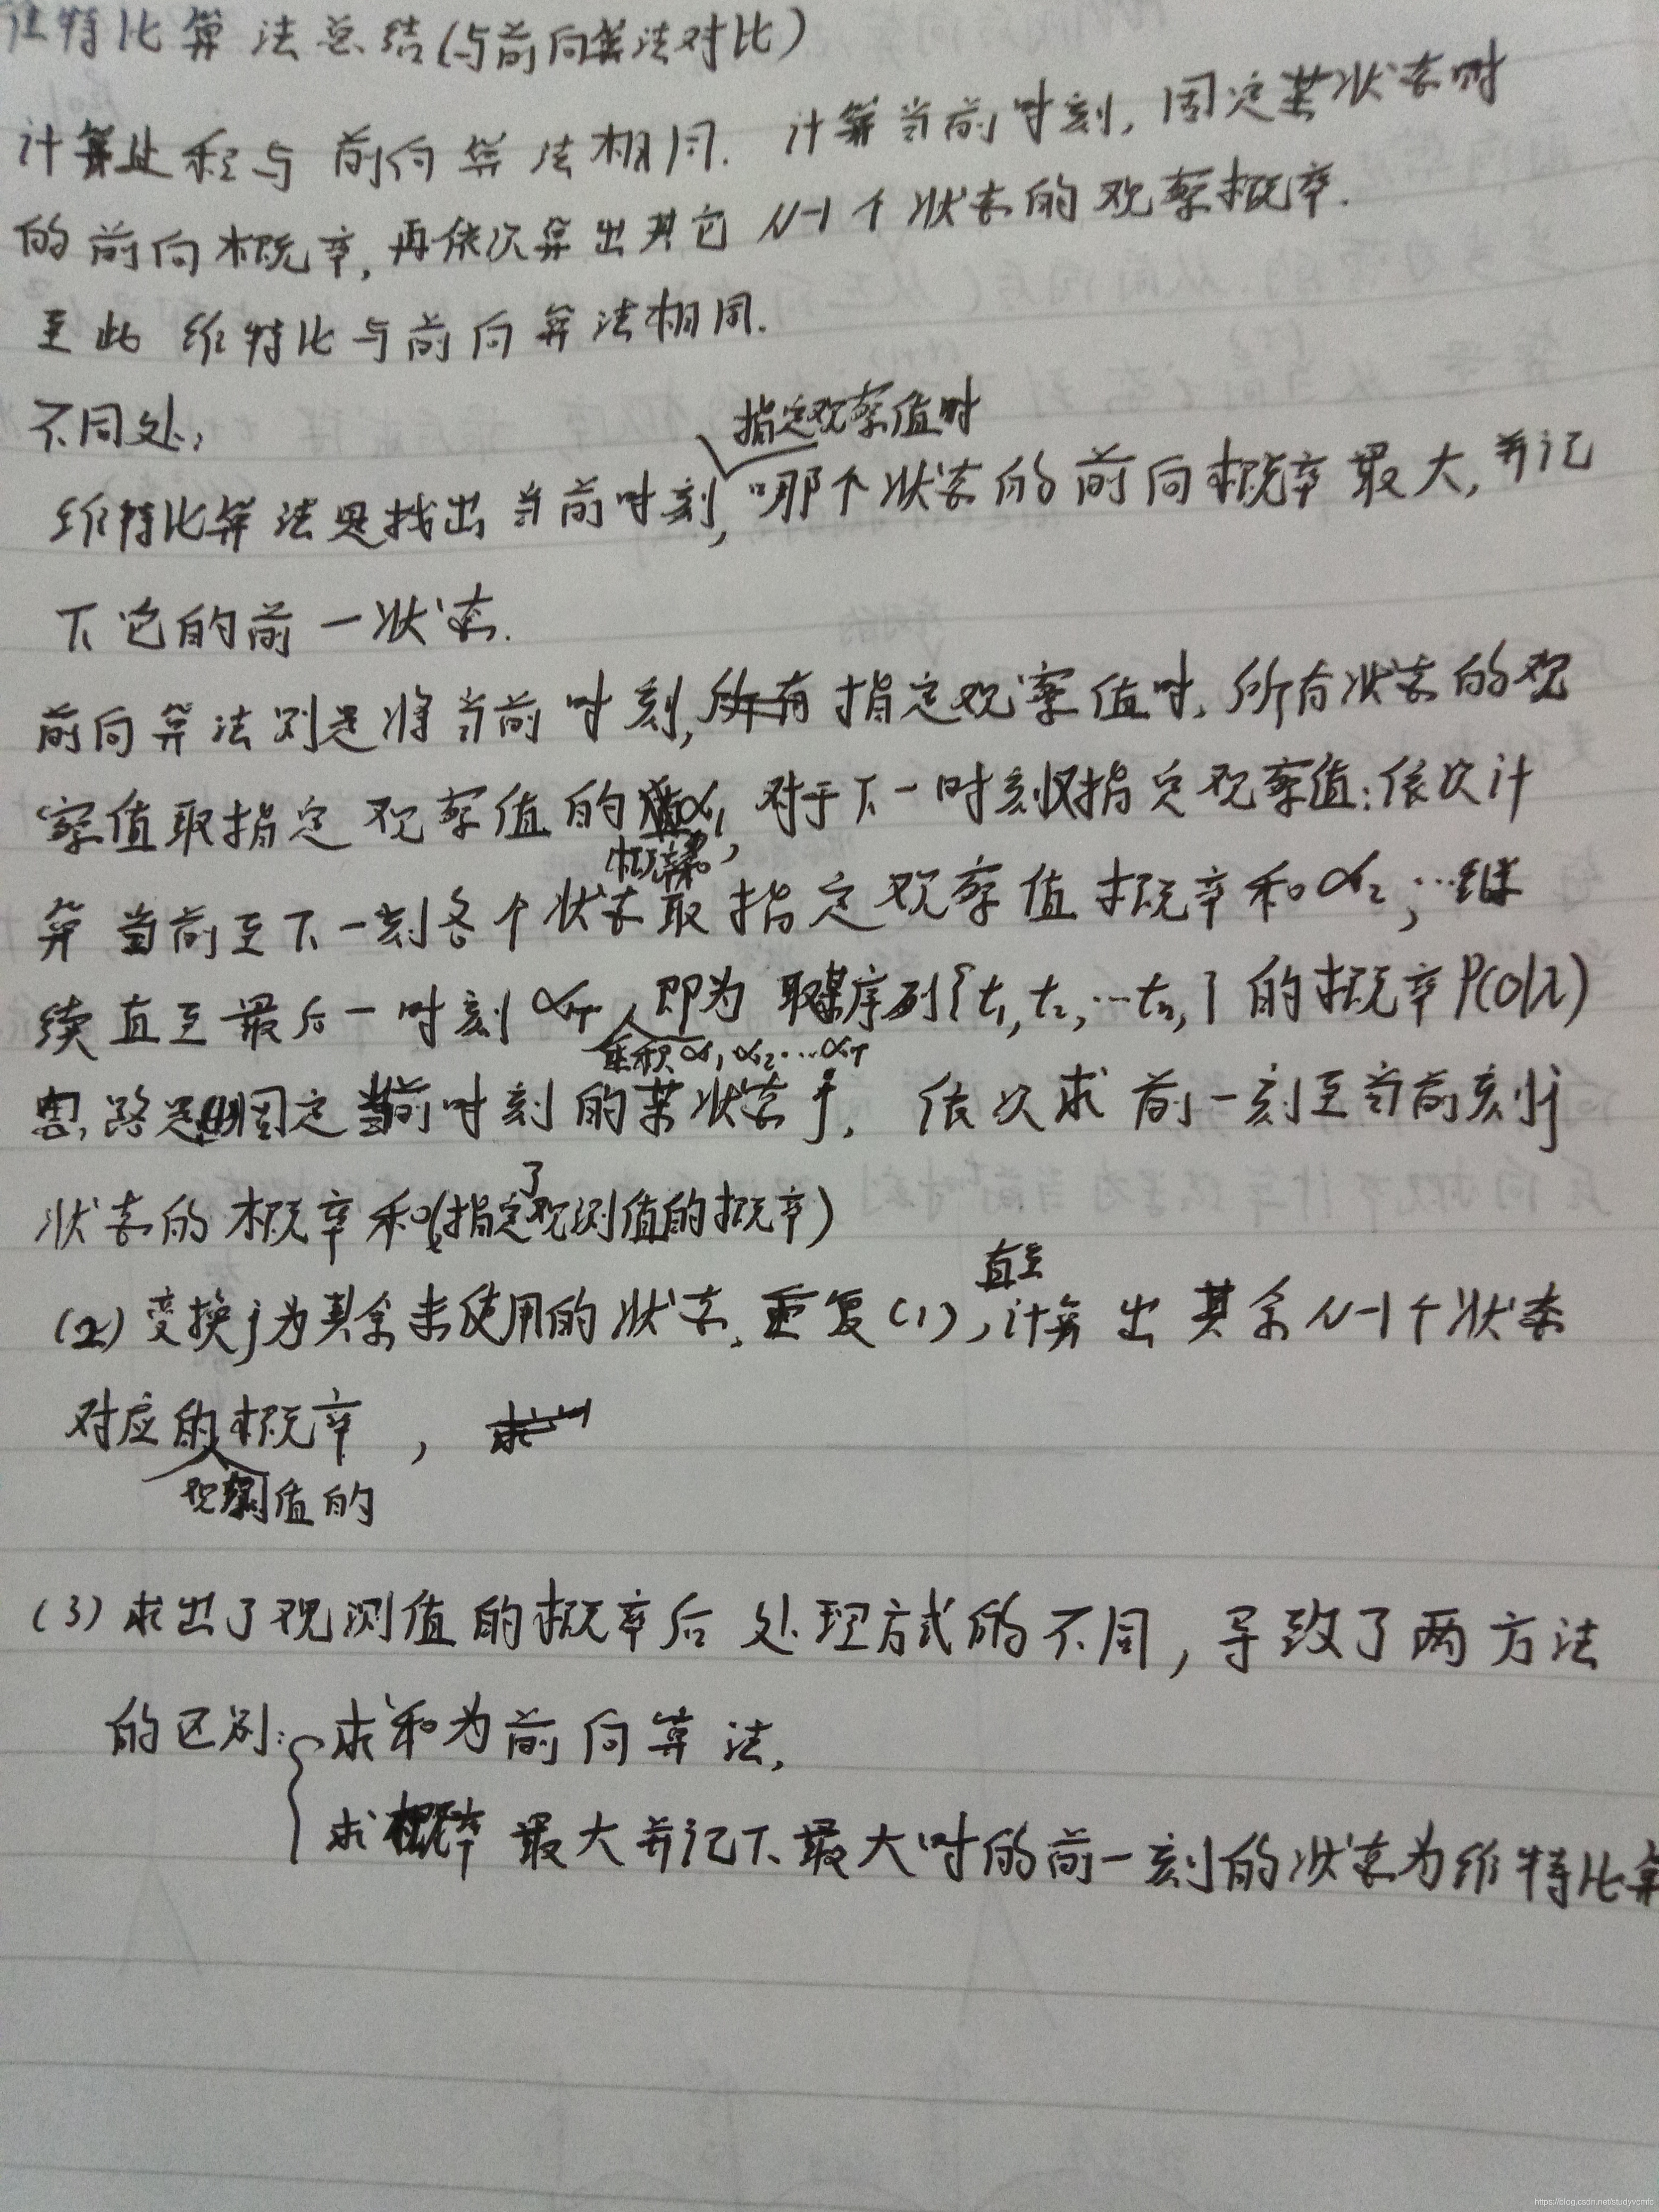 维特比算法总结(与前向算法对比)
计算过程与前向算法相同. 计算当前时刻, 固定某状态时
的前向概率, 再依次算出其它N-1个状态的观察概率.
至此 维特比与前向算法相同.
不同处:
指定观察值时
维特比算法是找出当前时刻, 哪个状态的前向概率最大, 并记
下它的前一状态.
前向算法则是将当前时刻, 所有指定观察值时, 所有状态的观
察值取指定观察值的 α₁, 对于下一时刻取指定观察值: 依次计
概率
算当前至下一刻各个状态取指定观察值概率和α₂, …继
续直至最后一时刻αT 即为取某序列{t₁, t₂, …tₙ,} 的概率P(O|λ)
累积α₁, α₂…αT
思路是(1)固定当前时刻的某状态j, 依次求前一刻至当前刻j
了
状态的概率和(指定观测值的概率)
直至
(2) 变换j为其余未使用的状态, 重复(1), 计算出其余N-1个状态
对应的概率, 求
观测值的
(3) 求出了观测值的概率后处理方式的不同, 导致了两方法
的区别: 求和为前向算法,
求概率最大并记下最大时的前一刻的状态为维特比算
https://blog.csdn.net/studyvcmfc